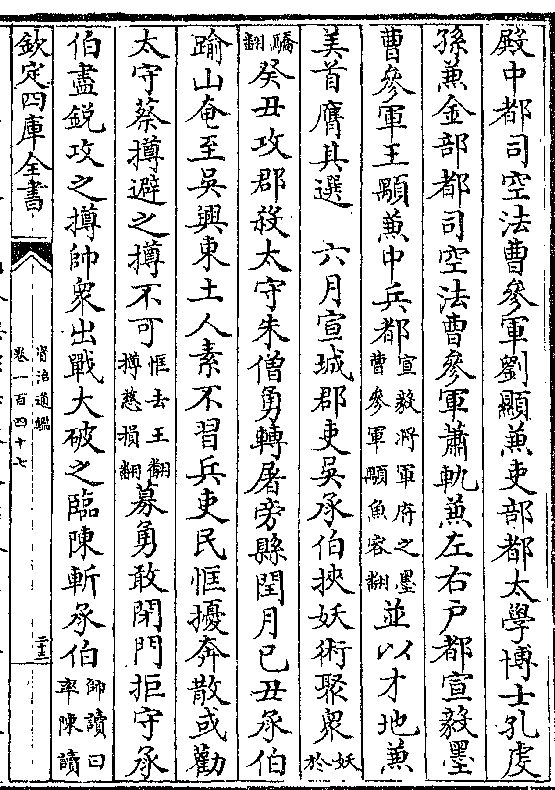 殿中都司空法曹參軍劉顯兼吏部都太學博士孔虔
孫兼金部都司空法曹參軍蕭軌兼左右戸都宣毅墨
曹參軍王顒兼中兵都宣毅將軍府之墨曹參軍顒魚容翻並以才地兼
美首膺其選　六月宣城郡吏吳承伯挾妖術聚衆妖於
驕翻癸丑攻郡殺太守朱僧勇轉屠旁縣閏月己丑承伯
踰山奄至吳興東土人素不習兵吏民恇擾奔散或勸
太守蔡撙避之撙不可恇去王翻撙慈損翻募勇敢閉門拒守承
伯盡銳攻之撙帥衆出戰大破之臨陳斬承伯帥讀曰率陳讀
欽定四庫全書
資治通鑑
卷一百四十七
二十三